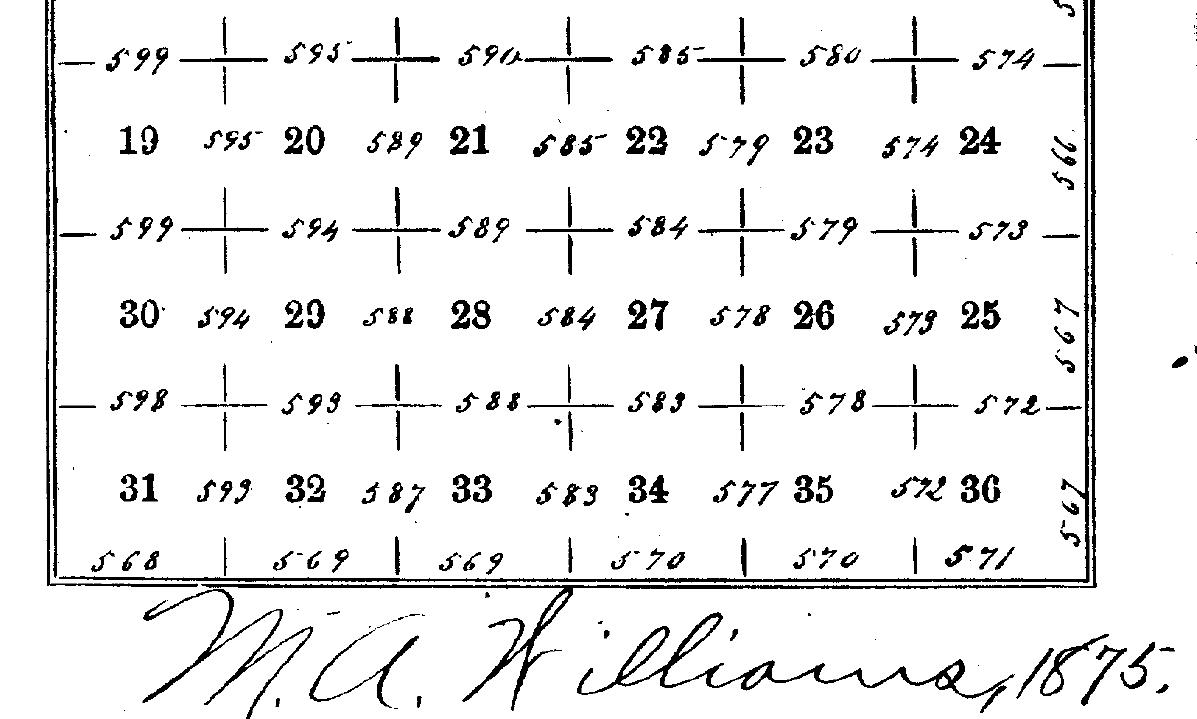 599 595 590 585 580 574
19 595 20 589 21 585 22 579 23 574 24 566
599 594 589 584 579 573
30 594 29 588 28 584 27 578 26 573 25 567
598 593 588 583 578 572
31 593 32 587 33 583 34 577 35 572 36 567
568 569 569 570 570 571
M. A. Williams, 1875.